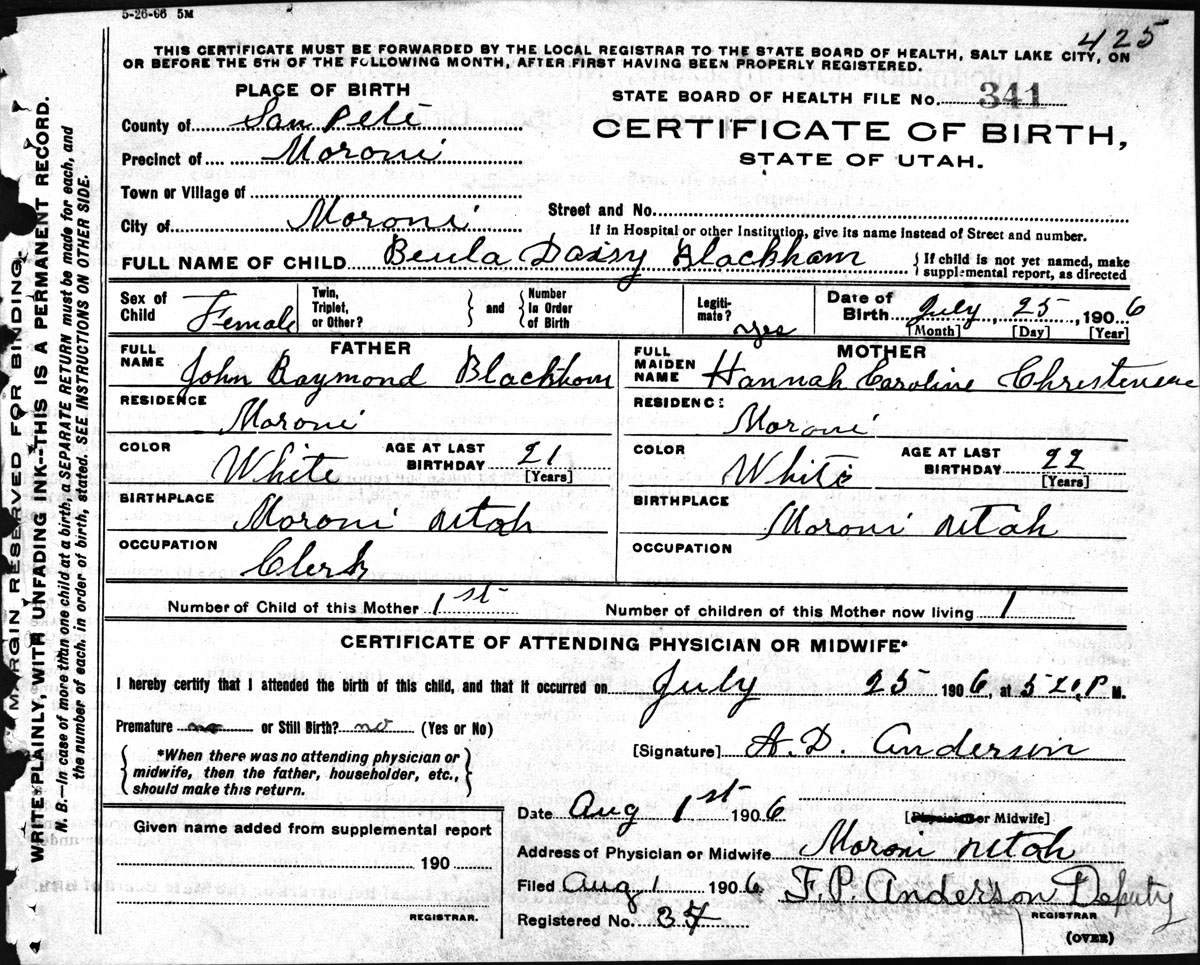 5-26-06 5M
425
THIS CERTIFICATE MUST BE FORWARDED BY THE LOCAL REGISTRAR TO THE STATE BOARD OF HEALTH, SALT LAKE CITY, ON
OR BEFORE THE 5TH OF THE FOLLOWING MONTH, AFTER FIRST HAVING BEEN PROPERLY REGISTERED.
PLACE OF BIRTH
STATE BOARD OF HEALTH FILE No. 341
County of San Pete
CERTIFICATE OF BIRTH,
Precinct of Moroni
STATE OF UTAH.
Town or Village of
City of Moroni
Street and No.
If in Hospital or other Institution, give its name instead of Street and number.
FULL NAME OF CHILD Beula Daisy Blackham {If child is not yet named, make supplemental report, as directed
Sex of Child Female
Twin, Triplet, or Other? } and { Number in Order of Birth
Legiti-mate? yes
Date of Birth July, 25, 1906
[Month] [Day] [Year]
FATHER
FULL NAME John Raymond Blackham
RESIDENCE
Moroni
COLOR White AGE AT LAST BIRTHDAY 21 [Years]
BIRTHPLACE
Moroni Utah
OCCUPATION
Clerk
MOTHER
FULL MAIDEN NAME Hannah Caroline Christensen
RESIDENCE
Moroni
COLOR White AGE AT LAST BIRTHDAY 22 [Years]
BIRTHPLACE
Moroni Utah
OCCUPATION
Number of Child of this Mother 1st Number of children of this Mother now living 1
CERTIFICATE OF ATTENDING PHYSICIAN OR MIDWIFE*
I hereby certify that I attended the birth of this child, and that it occurred on July 25 1906, at 5 20, P M.
Premature no or Still Birth? no (Yes or No)
[Signature] A. D. Anderson
{*When there was no attending physician or
midwife, then the father, householder, etc.,
should make this return.}
Date Aug 1st 1906
[Physician or Midwife]
Given name added from supplemental report
190
REGISTRAR.
Address of Physician or Midwife Moroni Utah
Filed Aug 1 1906 F. P. Anderson Deputy
REGISTRAR
Registered No. 34
(OVER)
MARGIN RESERVED FOR BINDING.
WRITE PLAINLY, WITH UNFADING INK--THIS IS A PERMANENT RECORD.
N. B.—In case of more than one child at a birth, a SEPARATE RETURN must be made for each, and
the number of each, in order of birth, stated. SEE INSTRUCTIONS ON OTHER SIDE.